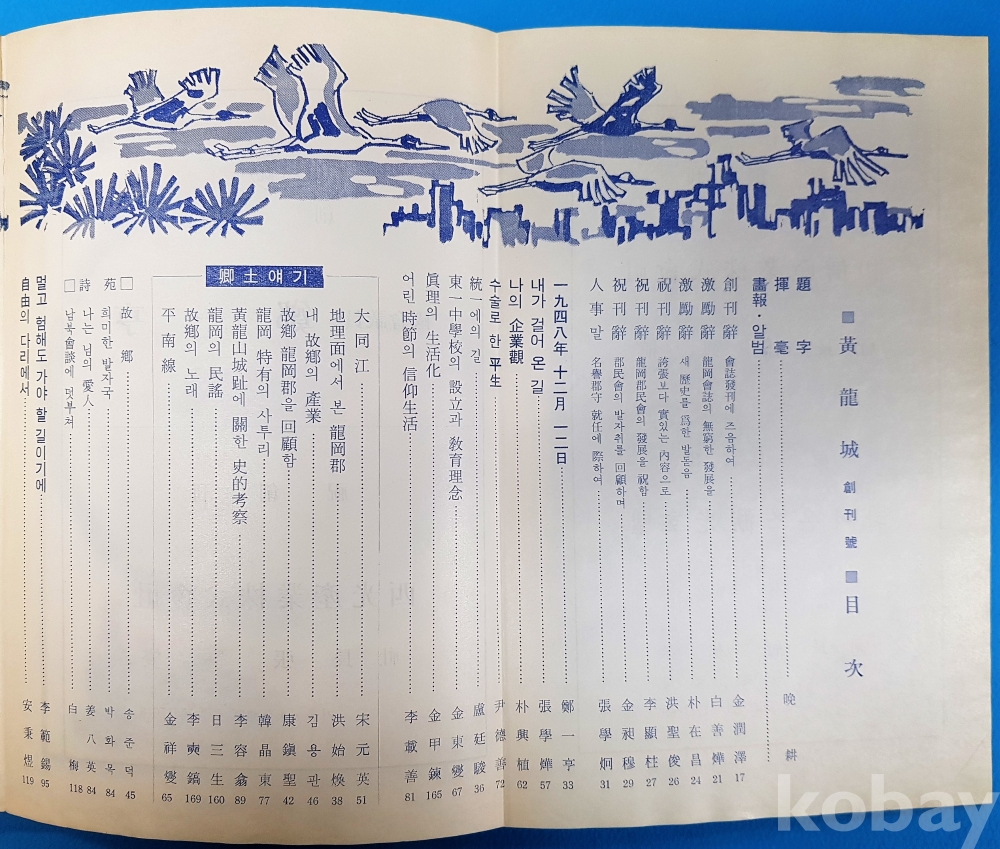 ■ 黃龍城 創刊號 ■ 目次
題字
揮毫 晚耕
畫報·알범
創刊辭 會誌發刊에 즈음하여 金潤澤 17
激勵辭 龍岡會誌의 無窮한 發展을 白善燁 21
激勵辭 새 歷史를 爲한 발돋음 朴在昌 24
祝刊辭 誇張보다 實있는 內容으로 洪聖俊 26
祝刊辭 龍岡郡民會의 發展을 祝함 李顯柱 27
祝刊辭 郡民會의 발자취를 回顧하며 金昶穆 29
人事말 名譽郡守 就任에 際하여 張學炯 31
一九四八年 十二月 一二日 鄭一亨 33
내가 걸어 온 길 張學燁 57
나의 企業觀 朴興植 62
수술로 한 平生 尹德善 72
統一에의 길 盧廷駿 36
東一中學校의 設立과 敎育理念 金東燮 67
眞理의 生活化 金甲鍊 165
어린 時節의 信仰生活 李載善 81
鄕土얘기
大同江 宋元英 51
地理面에서 본 龍岡郡 洪始煥 38
내 故鄕의 產業 김용관 46
故鄕 龍岡郡을 回顧함 康鎭聖 42
龍岡 特有의 사투리 韓晶東 77
黃龍山城趾에 關한 史的考察 李容翕 89
龍岡의 民謠 日三生 160
故鄕의 노래 李奭鎬 169
平南線 金祥燮 65
□ 故鄕 송준덕 45
苑 희미한 발자국 박화목 84
詩 나는 님의 愛人 姜八英 84
□ 남북會談에 덧부쳐 白梅 118
멀고 험해도 가야 할 길이기에 李範錫 95
自由의 다리에서 安秉煜 119
kobay